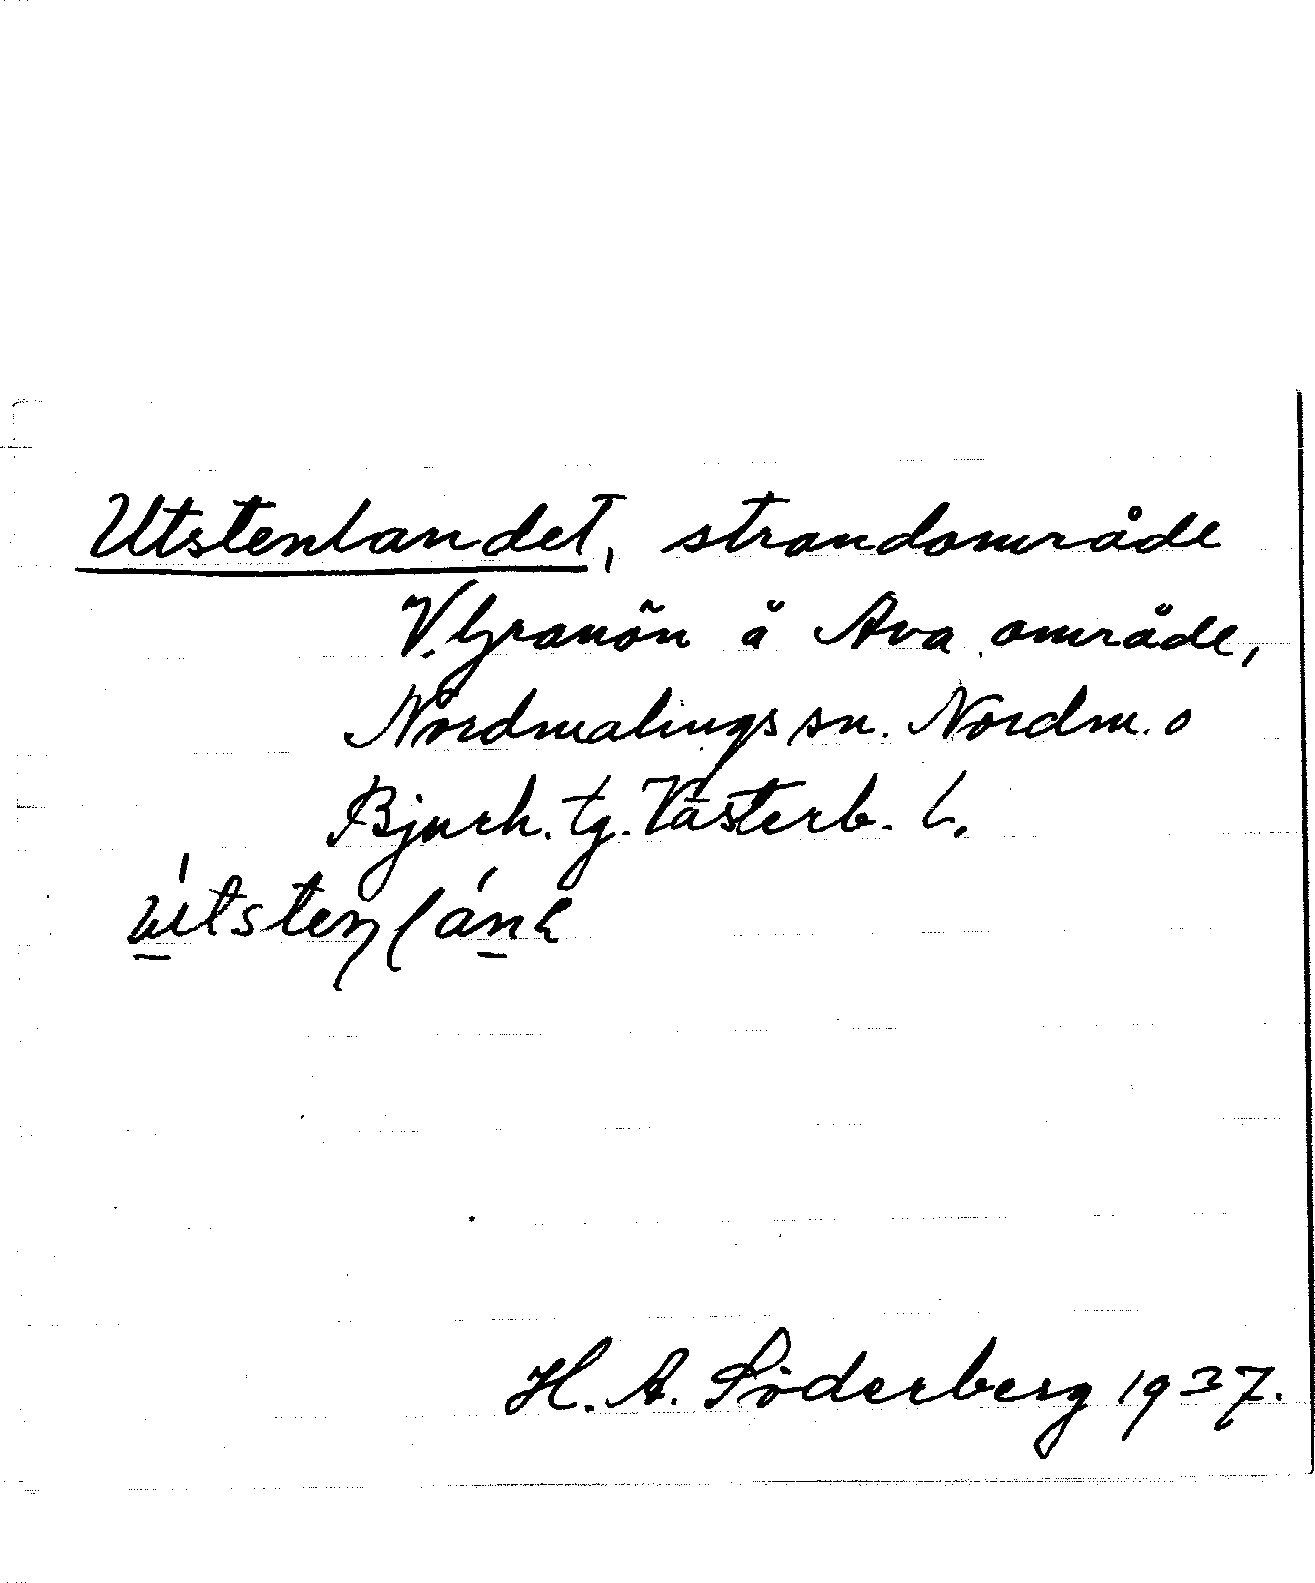 Utstenlandet, strandområde
V. Granön å Ava område,
Nordmalings sn. Nordm. o
Bjurh. tg. Västerb. l.
H. A. Söderberg 1937.